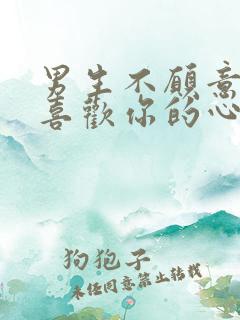 男生不願意
喜歡你的心
狗狍子
未任同意禁止转载